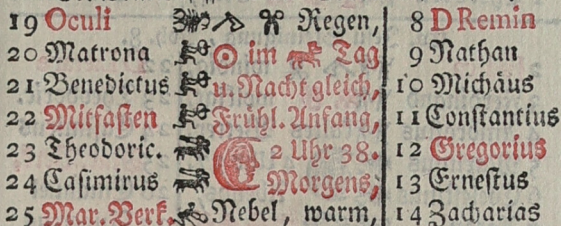 19 Oculi Regen, 8 D Remin
20 Matrona ☉ im Tag 9 Nathan
21 Benedictus u. Nacht gleich, 10 Michäus
22 Mitfasten Frühl. Anfang, 11 Constantius
23 Theodoric. 2 Uhr 38. 12 Gregorius
24 Casimirus Morgens, 13 Ernestus
25 Mar. Verk. Nebel, warm, 14 Zacharias